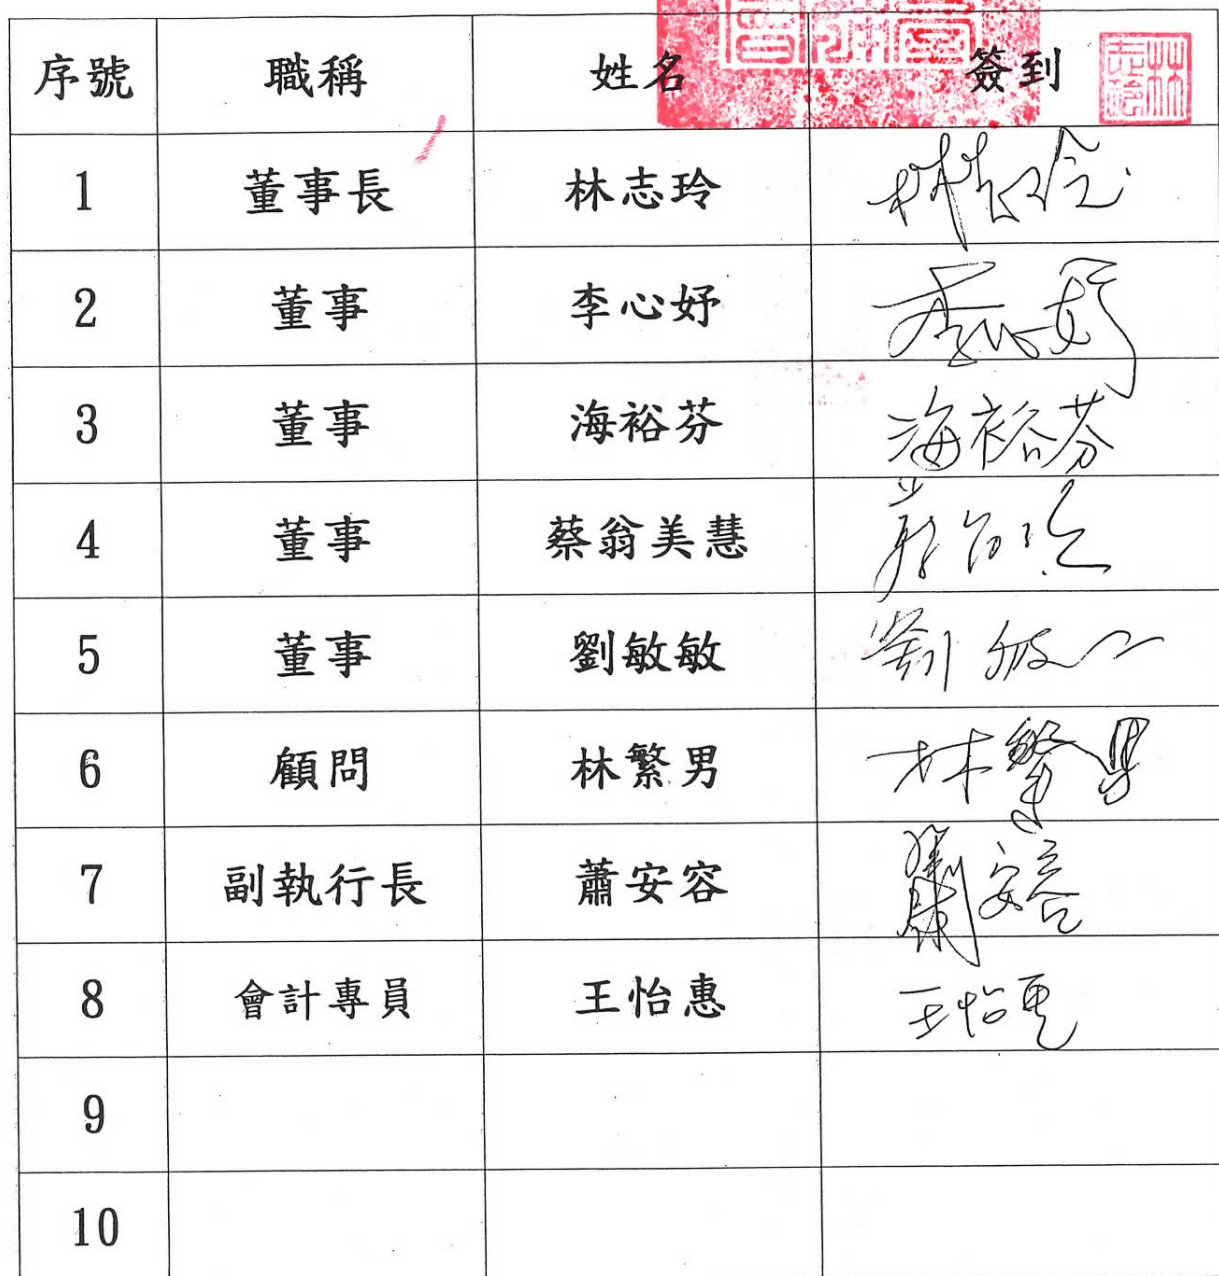 序號 職稱 姓名 簽到
林志玲
1 董事長 林志玲 林志玲
2 董事 李心妤 李心妤
3 董事 海裕芬 海裕芬
4 董事 蔡翁美慧
5 董事 劉敏敏 劉敏
6 顧問 林繁男 林繁男
7 副執行長 蕭安容 蕭安容
8 會計專員 王怡惠 王怡惠
9
10